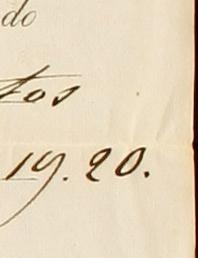 do
tos
19.20.